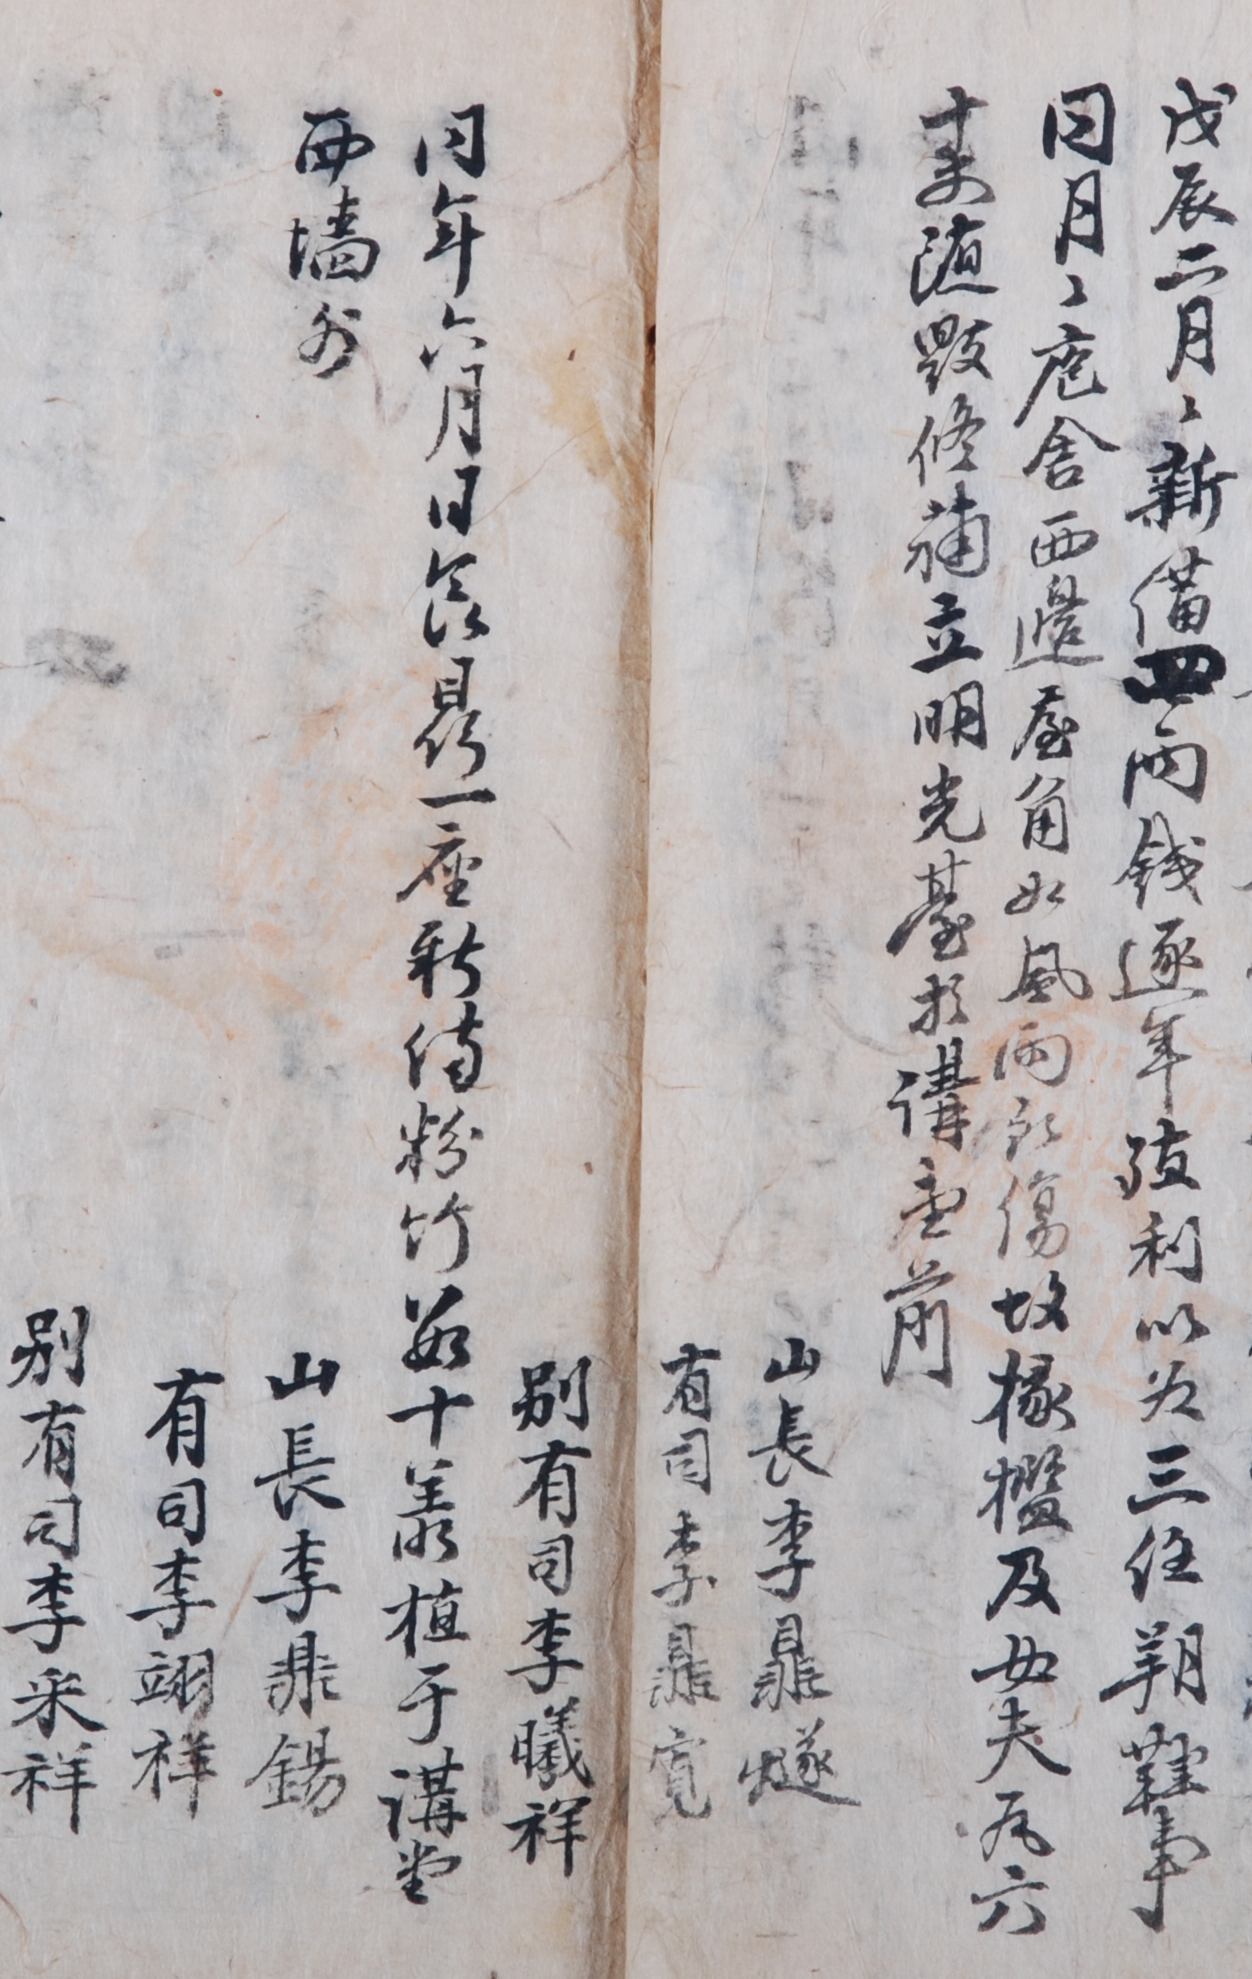 戊辰二月日新備四兩錢逐年殖利以為三任朔鞋事
同月日庖舍西邊屋角如風雨所傷故椽檻及女夫瓦六
十來随毀修補立明光臺於講堂前
山長李鼎燧
有司李鼎寬
別有司李曦祥
同年六月日食鼎一座新備粉竹數十叢植于講堂
西墻外
山長李鼎錫
有司李翊祥
別有司李采祥